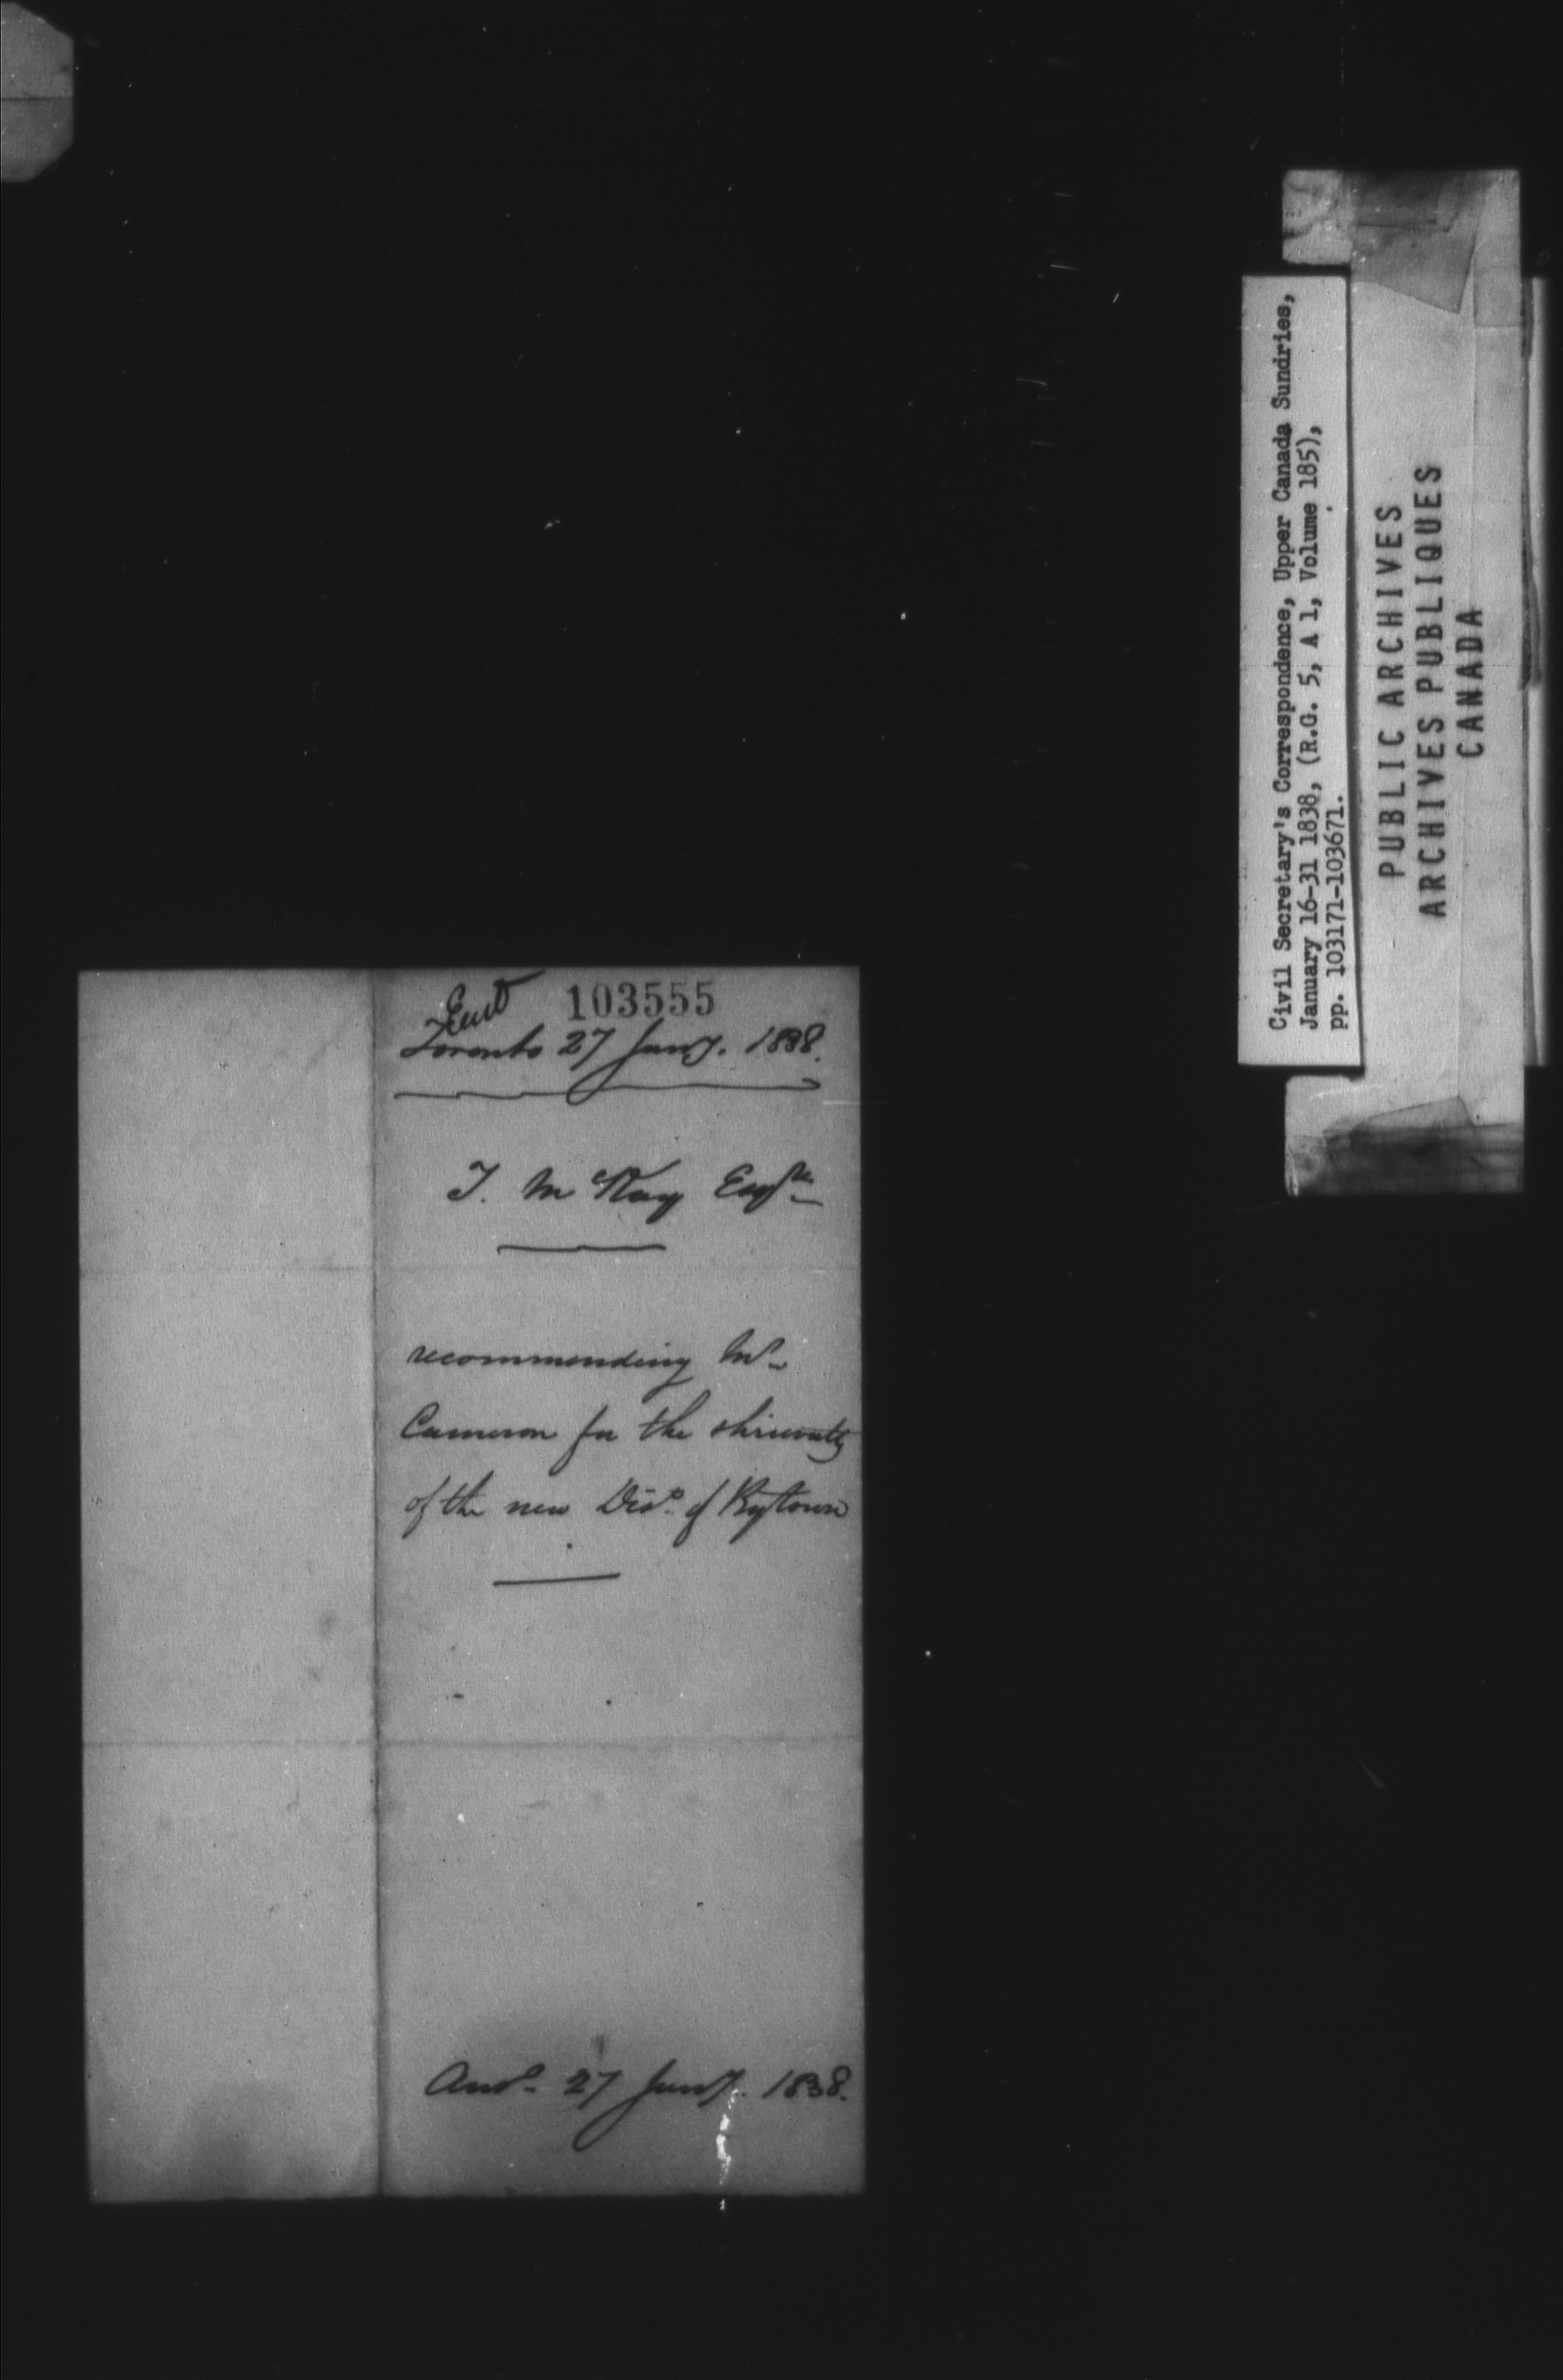 Entd 103555
Toronto 27 Jany. 1838.
T. McKay Esqre
recommending Mr
Cameron for the shrievalty
of the new Dist. of Bytown
Ansd. 27 Jany. 1838.
Civil Secretary's Correspondence, Upper Canada Sundries,
January 16-31 1838, (R.G. 5, A 1, Volume 185),
pp. 103171-103671.
PUBLIC ARCHIVES
ARCHIVES PUBLIQUES
CANADA